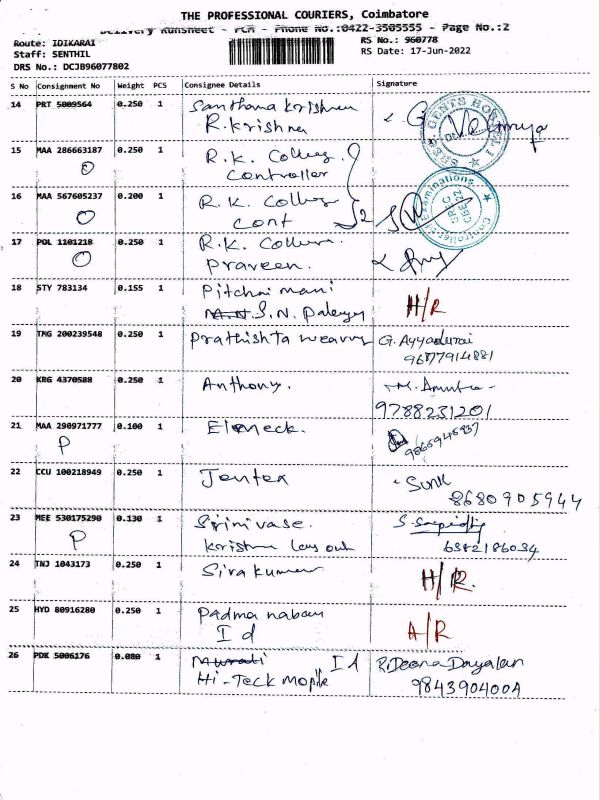 THE PROFESSIONAL COURIERS, Coimbatore
Delivery Runsheet - PCM - Phone No.:0422-3505555 - Page No.:2
Route: IDIKARAI
RS No.: 960778
Staff: SENTHIL
RS Date: 17-Jun-2022
DRS No.: DCJB96077802
S No Consignment No Weight PCS Consignee Details Signature
14 PRT 5009564 0.250 1 Santhana Krishnan
R.Krishna
15 MAA 286663187 0.250 1 R.K. College
Controller
16 MAA 567605237 0.200 1 R.K. College
Cont
Controller of Examinations
17 POL 1101218 0.250 1 R.K. College
praveen.
18 STY 783134 0.155 1 Pitchai mani H/R
S.N. Palayam
19 TMG 200239548 0.250 1 Prathishta weavv G. Ayyadurai
9677914881
20 KRG 4370588 0.250 1 Anthony.
9788231201
21 MAA 290971777 0.100 1
P
22 CCU 100218949 0.250 1 Jentex Sunil
8680905944
23 MEE 530175290 0.130 1 Srinivase.
P Krishna Lay out 6382186034
24 TNJ 1043173 0.250 1 Siva kumar H/R
25 HYD 80916280 0.250 1 Padma naban A/R
Id
26 PDK 5006176 0.080 1 Murali Id R.Deena Dayalan
Hi-Teck mople